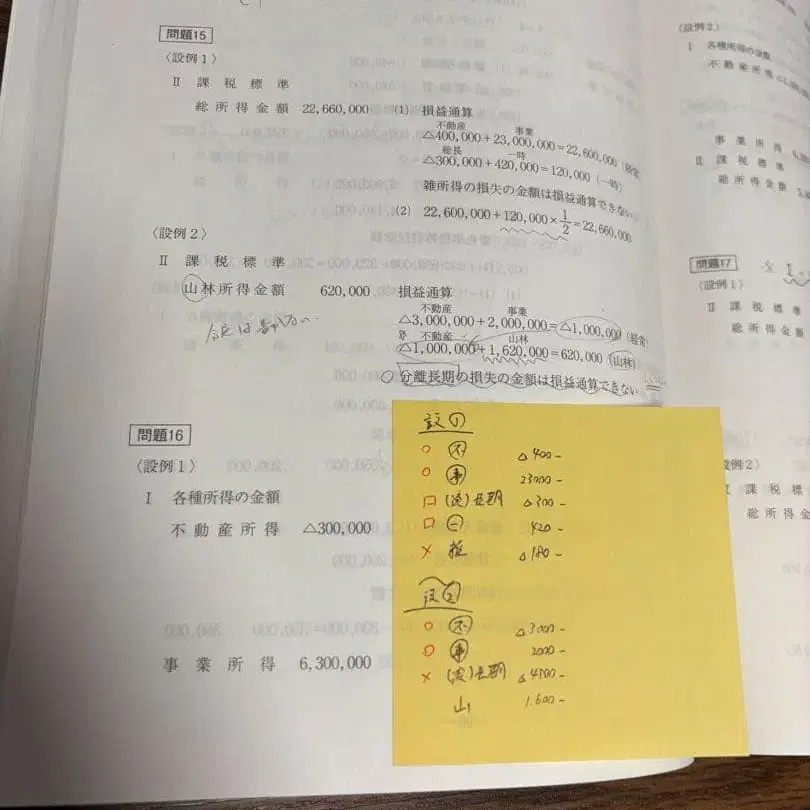 問題15
〈設例1〉
Ⅱ 課税標準
総所得金額 22,660,000 (1) 損益通算
不動産 事業
△400,000+23,000,000=22,600,000 (経常)
総長 一時
△300,000+420,000=120,000 (一時)
雑所得の損失の金額は損益通算できない。
(2) 22,600,000+120,000×1/2=22,660,000
〈設例2〉
Ⅱ 課税標準
山林所得金額 620,000 損益通算
不動産 事業
△3,000,000+2,000,000=△1,000,000 (経常)
不動産 山林
△1,000,000+1,620,000=620,000 (山林)
分離長期の損失の金額は損益通算できない。
問題16
〈設例1〉
Ⅰ 各種所得の金額
不動産所得 △300,000
事業所得 6,300,000
設①
○ 不 △400-
○ 事 23000-
□ (総)長期 △300-
□ 一 420-
× 雑 △180-
設②
○ 不 △3000-
○ 事 2000-
× 長期
山 1.600-
〈設例2〉
Ⅰ 各種所得の金額
不動産所得
事業所得
Ⅱ 課税標準
総所得金額
問題17
〈設例1〉
Ⅱ 課税標準
総所得
設例2〉
課税標準
総所得金